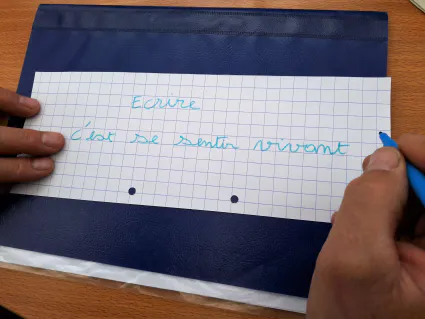 Ecrire
c'est se sentir vivant